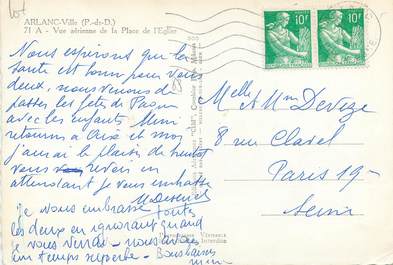 ARLANC-Ville (P.-de-D.)
71 A - Vue aérienne de la Place de l'Eglise
Nous espérons que la
santé est bonne pour vous
deux, nous venons de
passer les fêtes de
avec les enfants Mimi
retourne à et moi
j'aurai le plaisir de bientôt
vous revoir en
attendant je vous embrasse
je vous embrasse toutes
les deux en ignorant quand
je vous verrai - nous avons
un temps superbe - Bons baisers
10F
10F
Melle & Mm Deveze
8 rue Clavel
Paris 19-
Seine